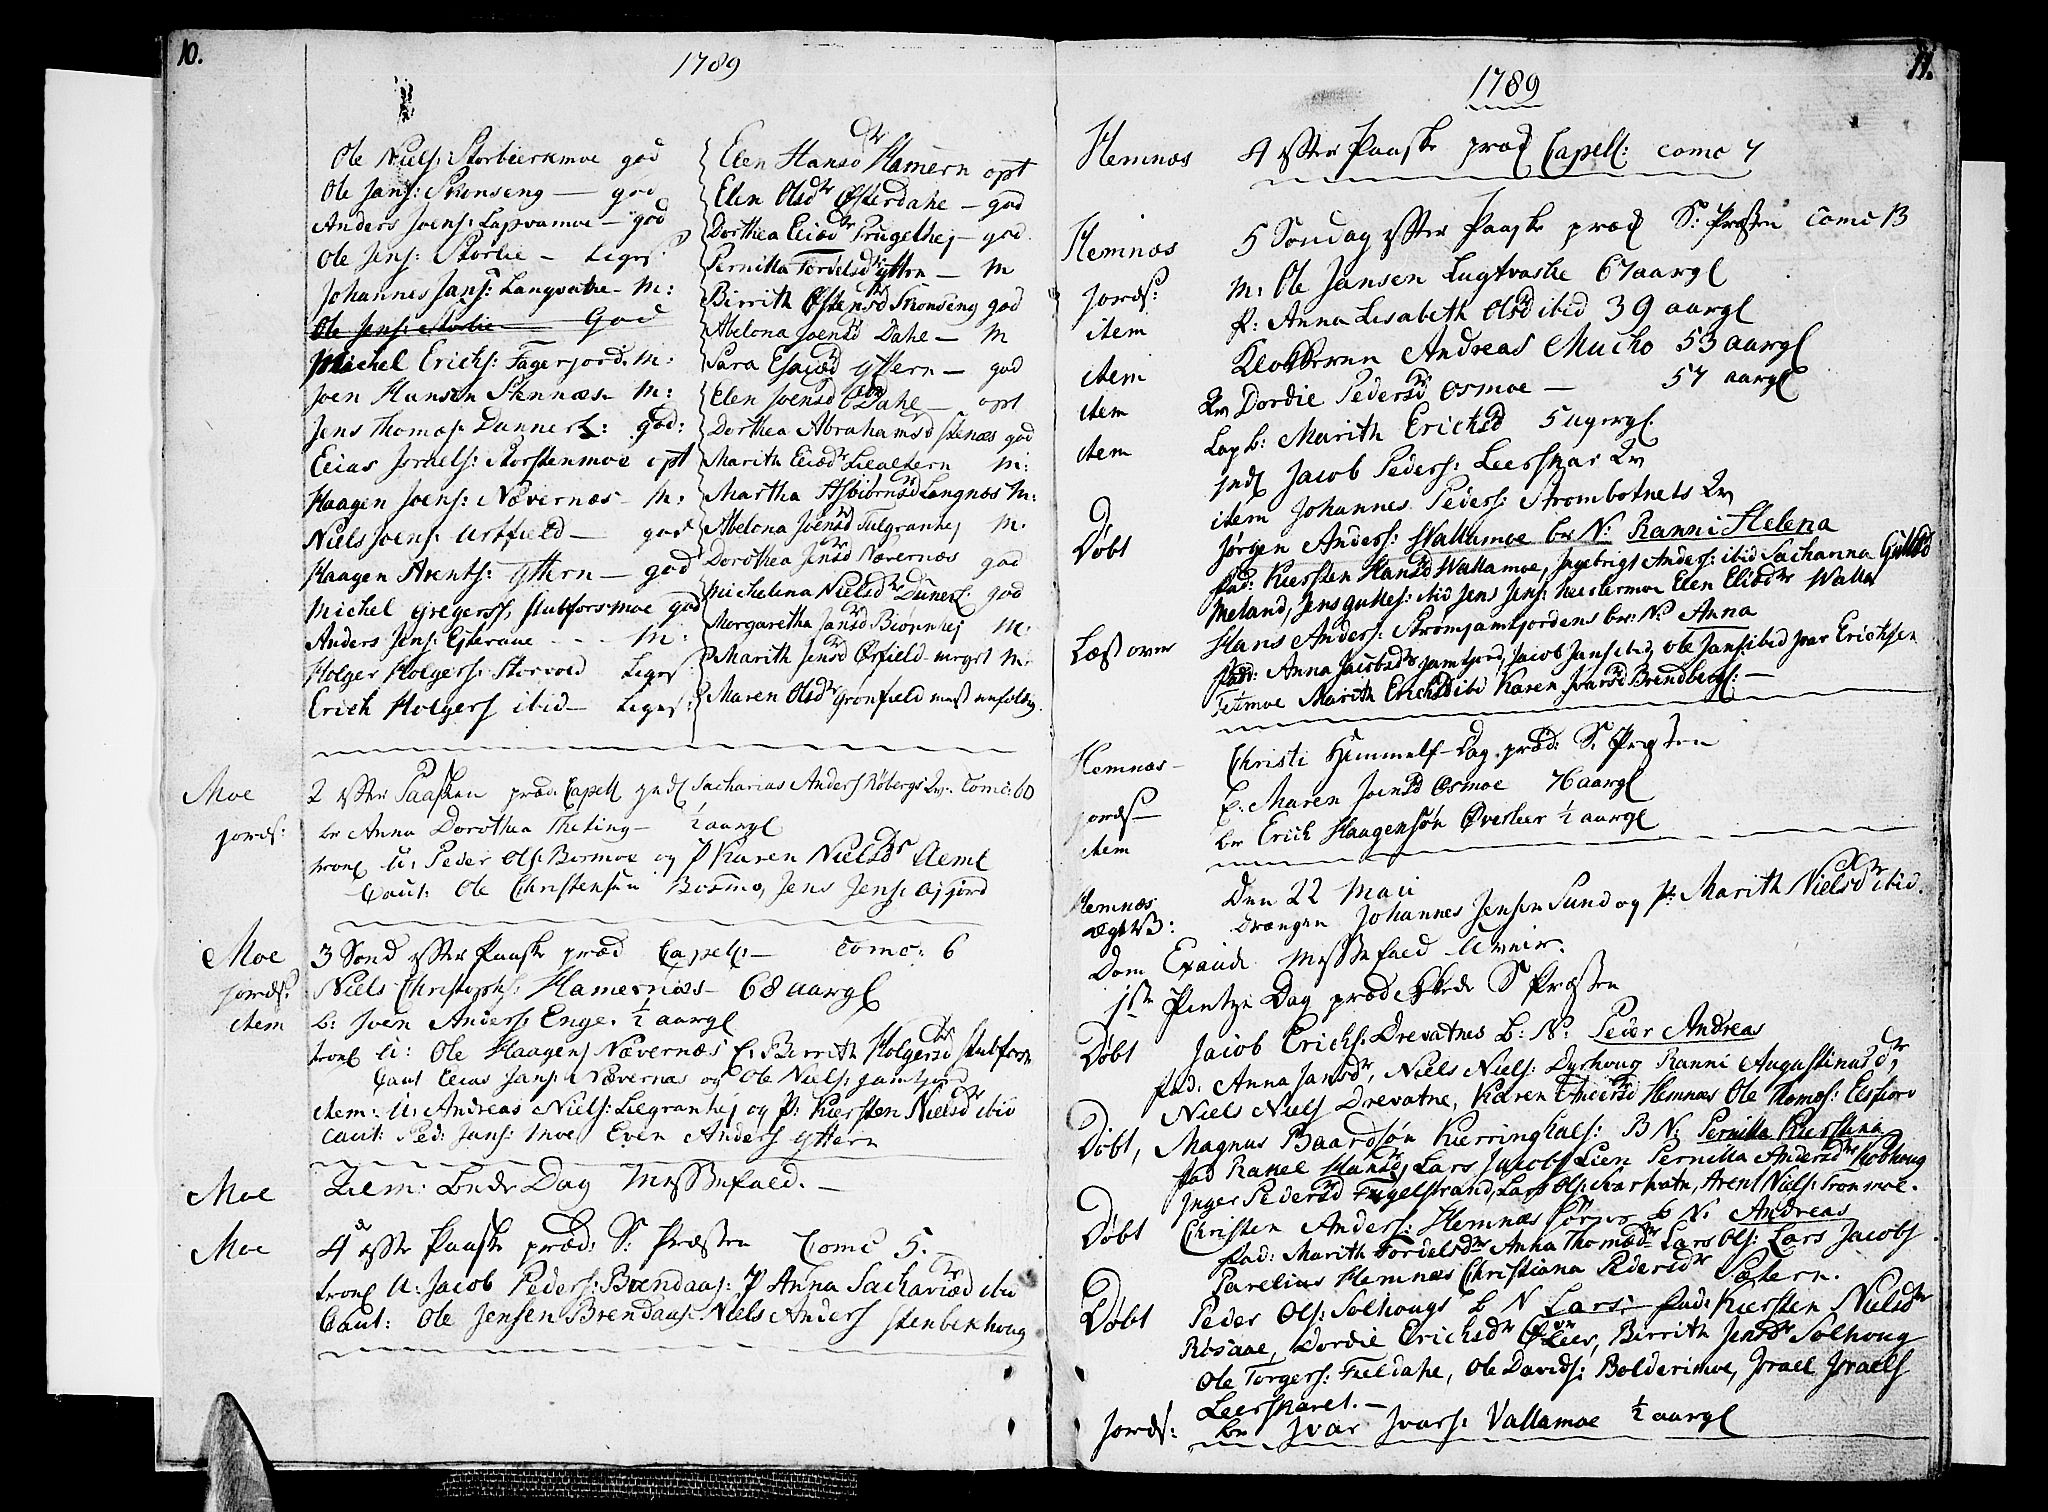 10.
1789
Ole Niels: Storbierkmoe god
Ole Jans: Strenseng — god
Anders Joens: Lapvamoe — god
Ole Jens: Storlie — Liges
Johannes Jans: Langvatne — M:
Ole Jens: Storlie — God
Michel Erichs: Fagerjord. M:
Joen Hansen Stennæs — M:
Jens Thomas Dannert: god:
Elias Jsraels: Storstenmoe opt
Haagen Joens: Nævernæs — M:
Niels Joens: Urtfield — god
Haagen Arents: Yttern — god
Michel Gregerss, Stubforsmoe god
Anders Jens: — M:
Holger Holgers: Storvold Liges
Erich Holgers ibid — Liges:
Elen Hansdr Hamern opt
Elen Olsdr Østerdahe — god
Dorthea Eliædr Prugelhej — god
Pernilla Tordelsdr Yttern — M
Birrith Østensdr Stronseng god
Abelona Joensdr Dahe — M
Sara Esaiædr Yttern — god
Elen Joensdr Dahe — opt
Dorthea Abrahamsd Stenæs god
Marith Eliædr Lieattern M:
Martha Asbiørnsdr Langnæs M:
Abelona Joensdr Tulgranhej M.
Dorothea Jensdr Nævernæs god
Michelena Nielsdr Dunert: god
Morgaretha Jansdr Biørnhej M:
Marith Jensdr Ørfield meget M:
Maren Olsdr Grønfield mest enfoldig.
Moe 2 efter Paasken præd: Capell jndl Sacharias Anders Røbergs Tv: Comc: 60
jords: br Anna Dorothea Theting — ½ aargl
trol U: Peder Ols: Bosmoe og P Karen Nielsdr Aeml
Caut: Ole Christensen Bosmo, Jens Jens: Ajfjord
Moe 3 Sønd efter Paaske præd Capell: — Comc: 6
jords: Niels Christophs: Hamernæs — 68 aargl
item b: Joen Anders: Enge. ½ aargl
trol U: Ole Haagens Nævernæs E: Birrith Holgersdr Stubforsm
Caut Elias Jans: Nævernæs og Ole Niels: Jamtjord
item: U: Andreas Niels: Liegranhej og P: Kiersten Nielsdr ibid
Caut: Ped: Jans: Moe, Even Anders Yttern
Moe Alem: Bede Dag Messefald. —
Moe 4de efter Paaske præd: S: Præsten Comc 5.
trol U: Jacob Peders: Brendaas: P Anna Sachariædr ibid
Caut: Ole Jensen Brendaas. Niels Anders Stenbekhoug
11.
1789
Hemnæs 4 efter Paaske præd Capell: comc 7
Hemnæs 5 Søndag efter Paaske præd S: Præsten Comc 13
jords: M: Ole Jansen Lugtvashe 67 aargl
item P: Anna Lisabeth Olsdr ibid 39 aargl
item Klokkeren Andreas Mucho 53 aargl
item Qv Dordie Pedersdr Osmoe — 57 aargl
item Lap b: Marith Erichsdr 5 ugergl.
jndl Jacob Peders: Leerskar Qv
item Johannes Peders: Strombotnets Qv
Døbt Jørgen Anders: Wallamoe br N: Ranni Helena
fad: Kiersten Hansdr Wallamoe, Jngebrigt Anders: ibid Sachanna Gullsd
Meland, Jens Gulles: ibid Jens Jens: Leermoe Elen Eliædr Walla
Læst over Hans Anders: Strømjamtjordens br: N: Anna
fad: Anna Jacobsdr Jamtjord, Jacob Jans ibid, Ole Jans ibid Jvar Erichsen
Tetmoe Marith Erichsdr ibid Karen Jvarsdr Brendbergs: —
Hemnæs — Christi Himmelf — Dag. præd: S. Præsten
jords — E: Maren Joensdr Osmoe 76 aargl
item br Erich Haagensøn Øverleer ½ aargl
Hemnæs Den 22 Maii
ægtev: Drængen Johannes Jensen Sund og P: Marith Nielsdr ibid.
Dom Exaudi Messefald Uveir.
1ste Pintze Dag præd S Præsten
Døbt Jacob Erichs: Drevatnes b: N: Peder Andreas
fad: Anna Jansdr, Niels Niels: Dyrhoug Ranni Augustinusdr,
Niels Niels Drevatne, Karen Andersdr Hemnæs Ole Thomæs: Lesfiord
Døbt, Magnus Baardsøn Kierringhals: B N: Pernilla Kierstina
fad Rakel Hansdr, Lars Jacobs Lien Pernilla Andersdr Kobhoug
Jnger Pedersdr Fugelstrand, Lars Ols: , Arent Niels: Tronmoe.
Døbt Christen Anders: Hemnæs b N: Andreas
fad: Marith Tordelsdr Anna Thomædr Lars Ols: Lars Jacobs
Parelius Hemnæs Christiana Pedersdr
Døbt Peder Ols: Solhougs b N Lars: fad: Kiersten Nielsdr
Røsaae, Dordie Erichsdr Øvrleer, Birrith Jensdr Solhoug
Ole Torgers: Fueldahe, Ole Davids: Bolderimoe, Jsrael Jsraels
Leerskaret. —
jords: br Jvar Jvars: Vallamoe ½ aargl